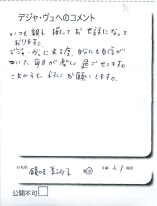 デジャ・ヴュへのコメント
いつも親子 揃って お世話になって
おります。
デジャ・ヴュに来る度、自分にも自信が
ついて、毎日が楽しく過ごせます。
これからも、よろしくお願いします。
お名前
年齢 21 職業
公開不可